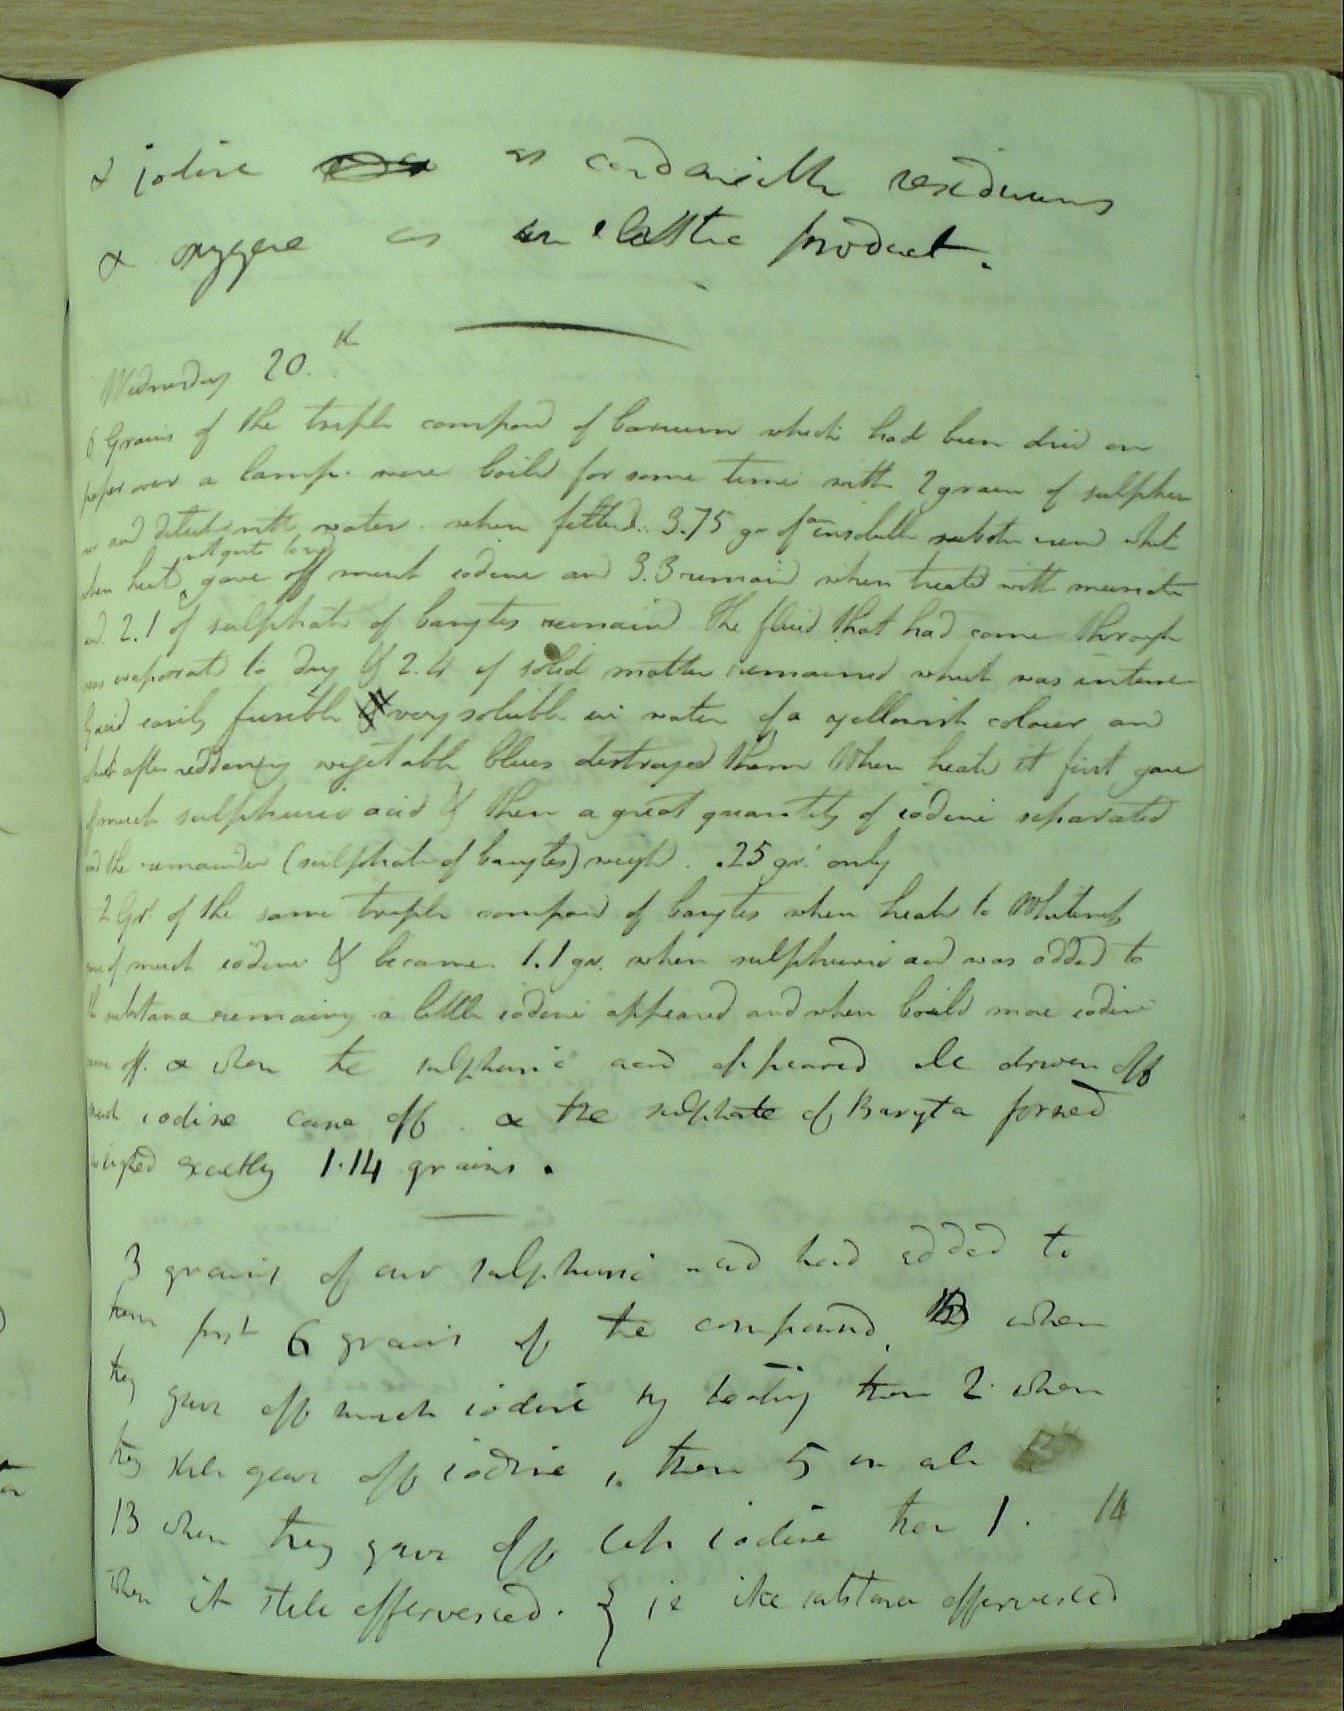 & iodine as condensible residuums
& oxygene as an elastic product.
Wednesday 20.th
6 Grains of the triple compound of barium which had been dried on
paper over a lamp. were boild for some time with 2 grains of sulphur
and dilutd with water. when filterd. 3.75 gr of an insoluble substance which
when heatd not quite long gave off much iodine and 3.3 remaind when treatd with muriatic
2.1 of sulphate of barytes remaind The fluid that had come through
was evaporatd to dry & 2.4 of solid matter remained which was intense
ly acid easily fusible & very soluble in water of a yellowish colour and
that after reddening vegetable blues destroyed them When heatd it first gave
of much sulphuric acid & then a great quantity of iodine separated
and the remainder (sulphate of barytes) weighd .25 gr. only
2 Grs of the same triple compound of barytes when heatd to Whiteness
gave of much iodine & became 1.1 gr. when sulphuric acid was added to
the substance remaining a little iodine appeared and when boild more iodine
came off. & when the sulphuric acid appeared all driven off
much iodine came off & the sulphate of Baryta formed
weighed exactly 1.14 grains.
3 grains of our sulphuric acid had added to
them first 6 grains of the compound when
they gave off much iodine by heating then 2 when
they still gave off iodine, then 5 in all
13 when they gave off less iodine then 1. 14
when it still effervesced. { ie the substance effervesced